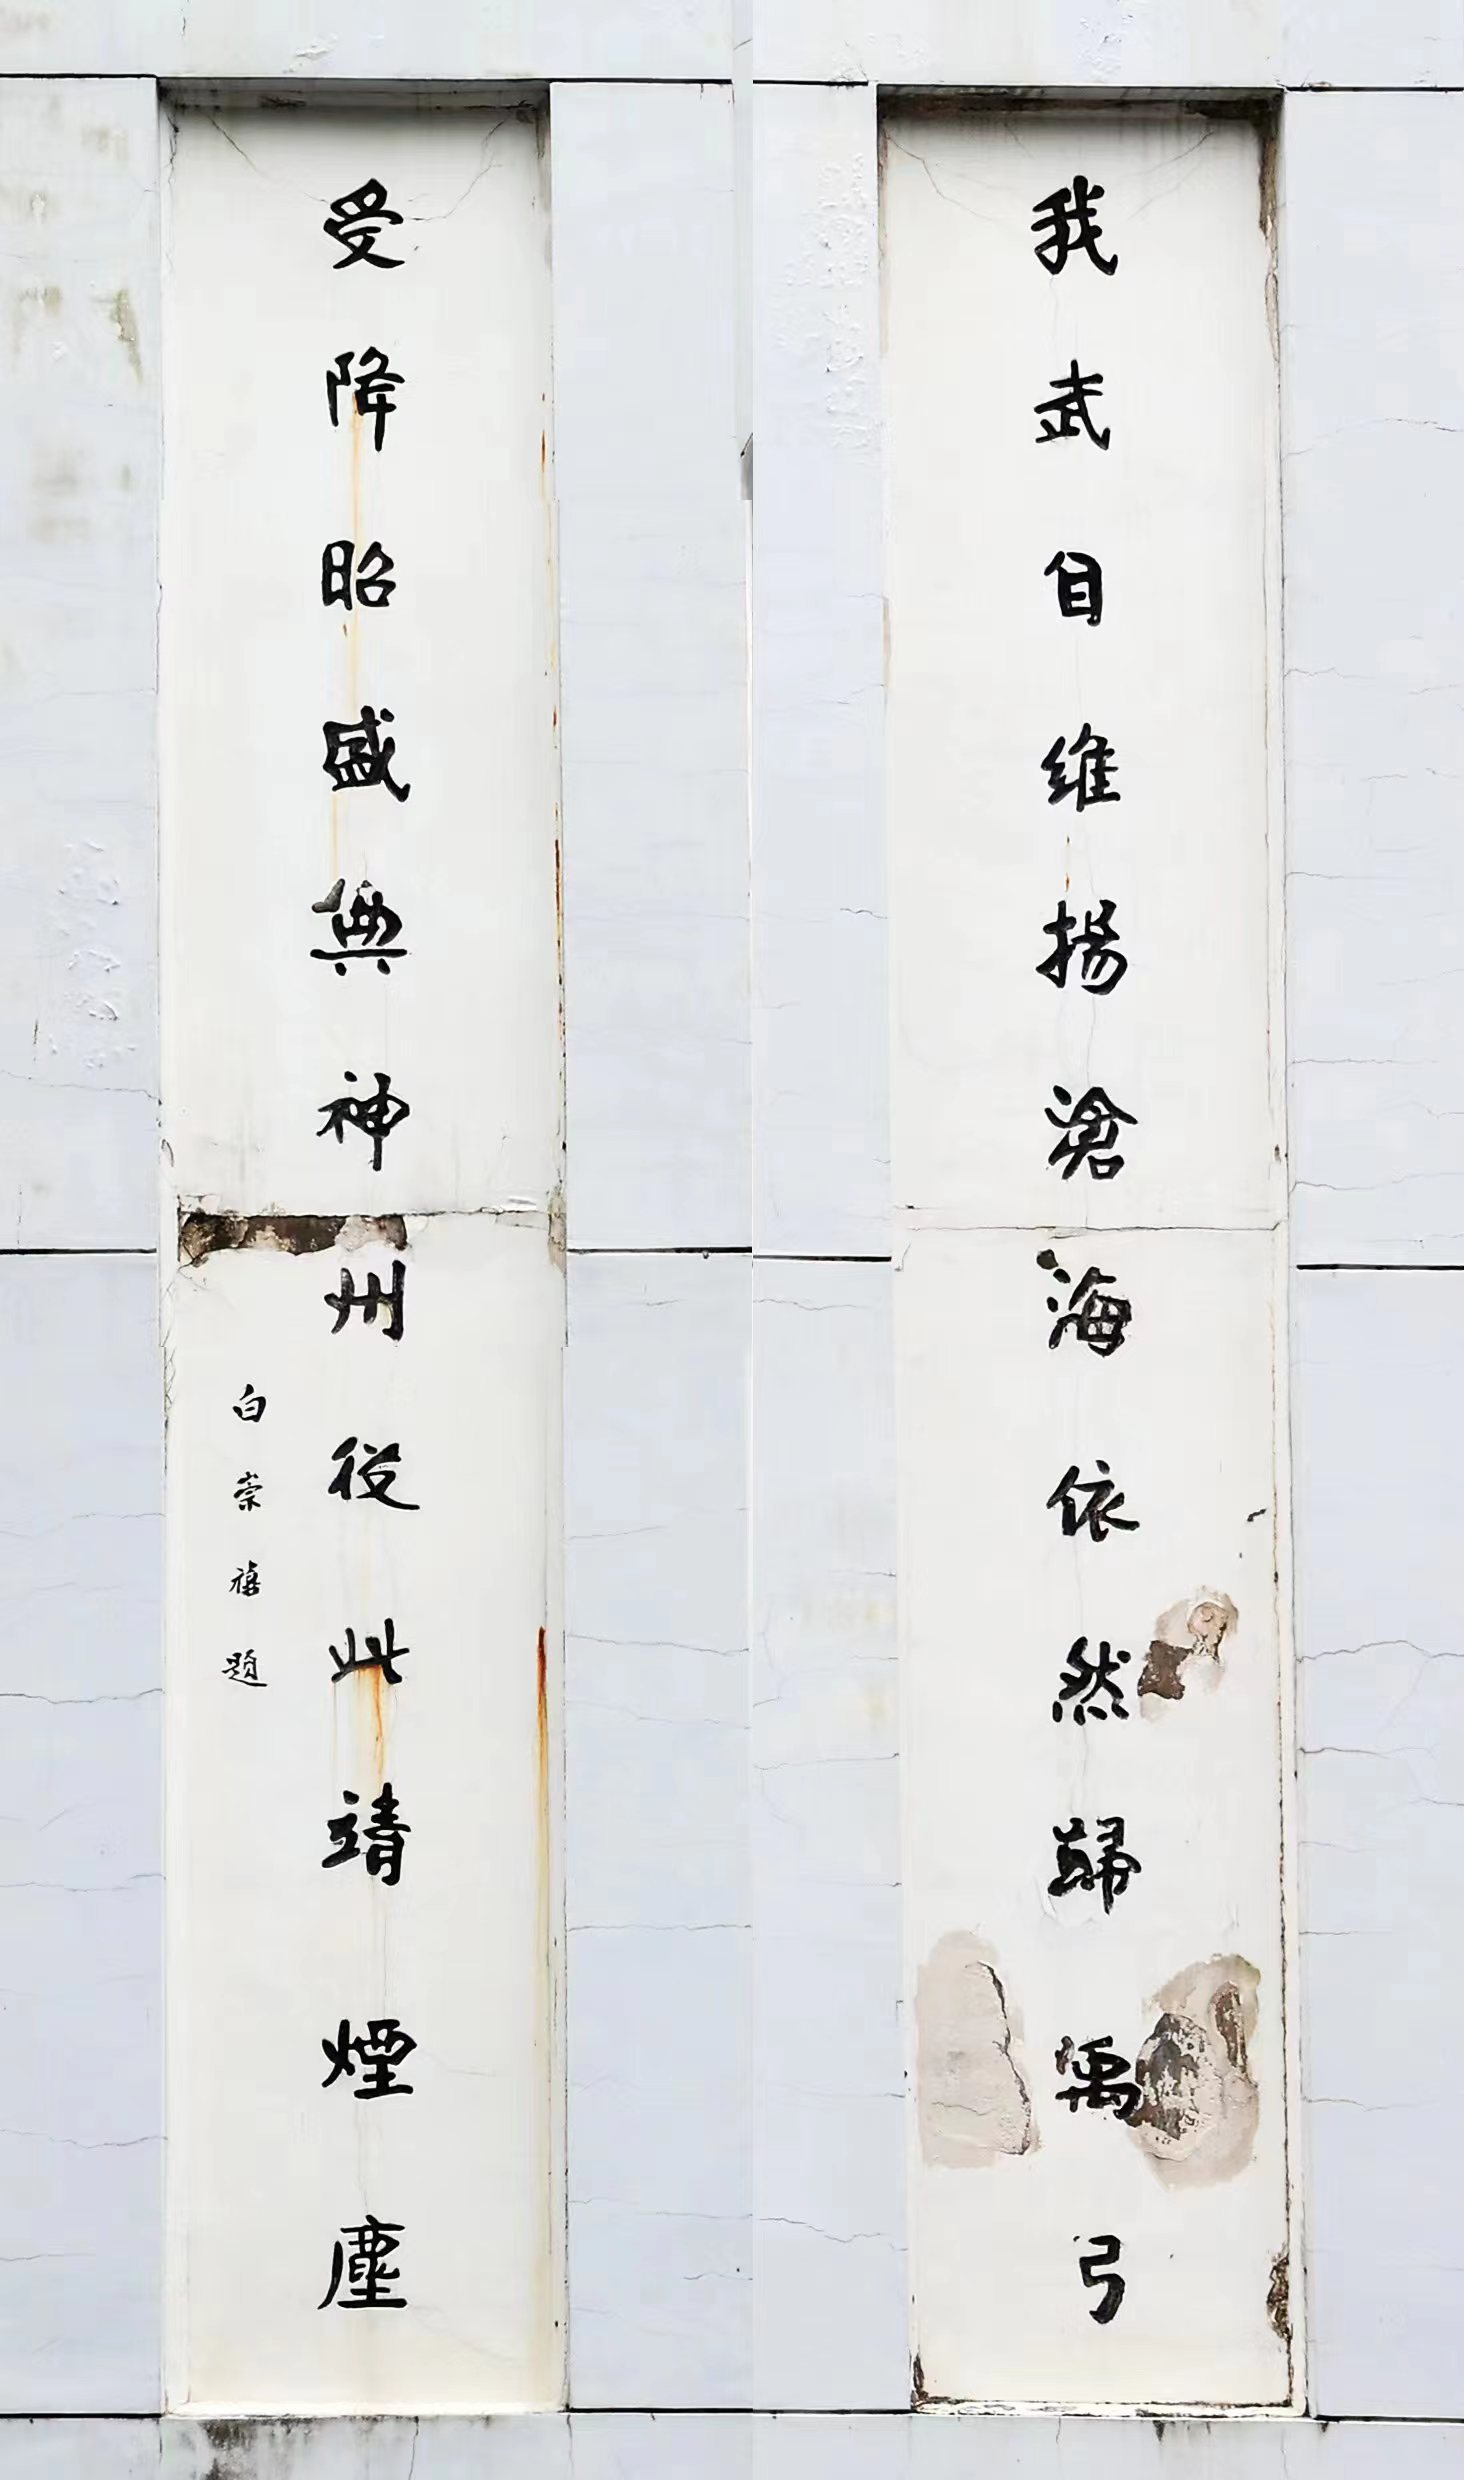 我武自維揚滄海依然歸禹弓
受降昭盛典神州從此靖煙塵
白崇禧題